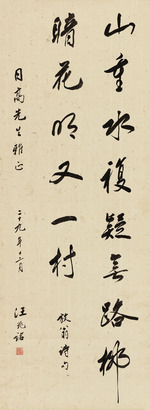 山重水複疑無路柳
暗花明又一村
放翁詩句
日高先生雅正
二十九年十二月
汪兆銘